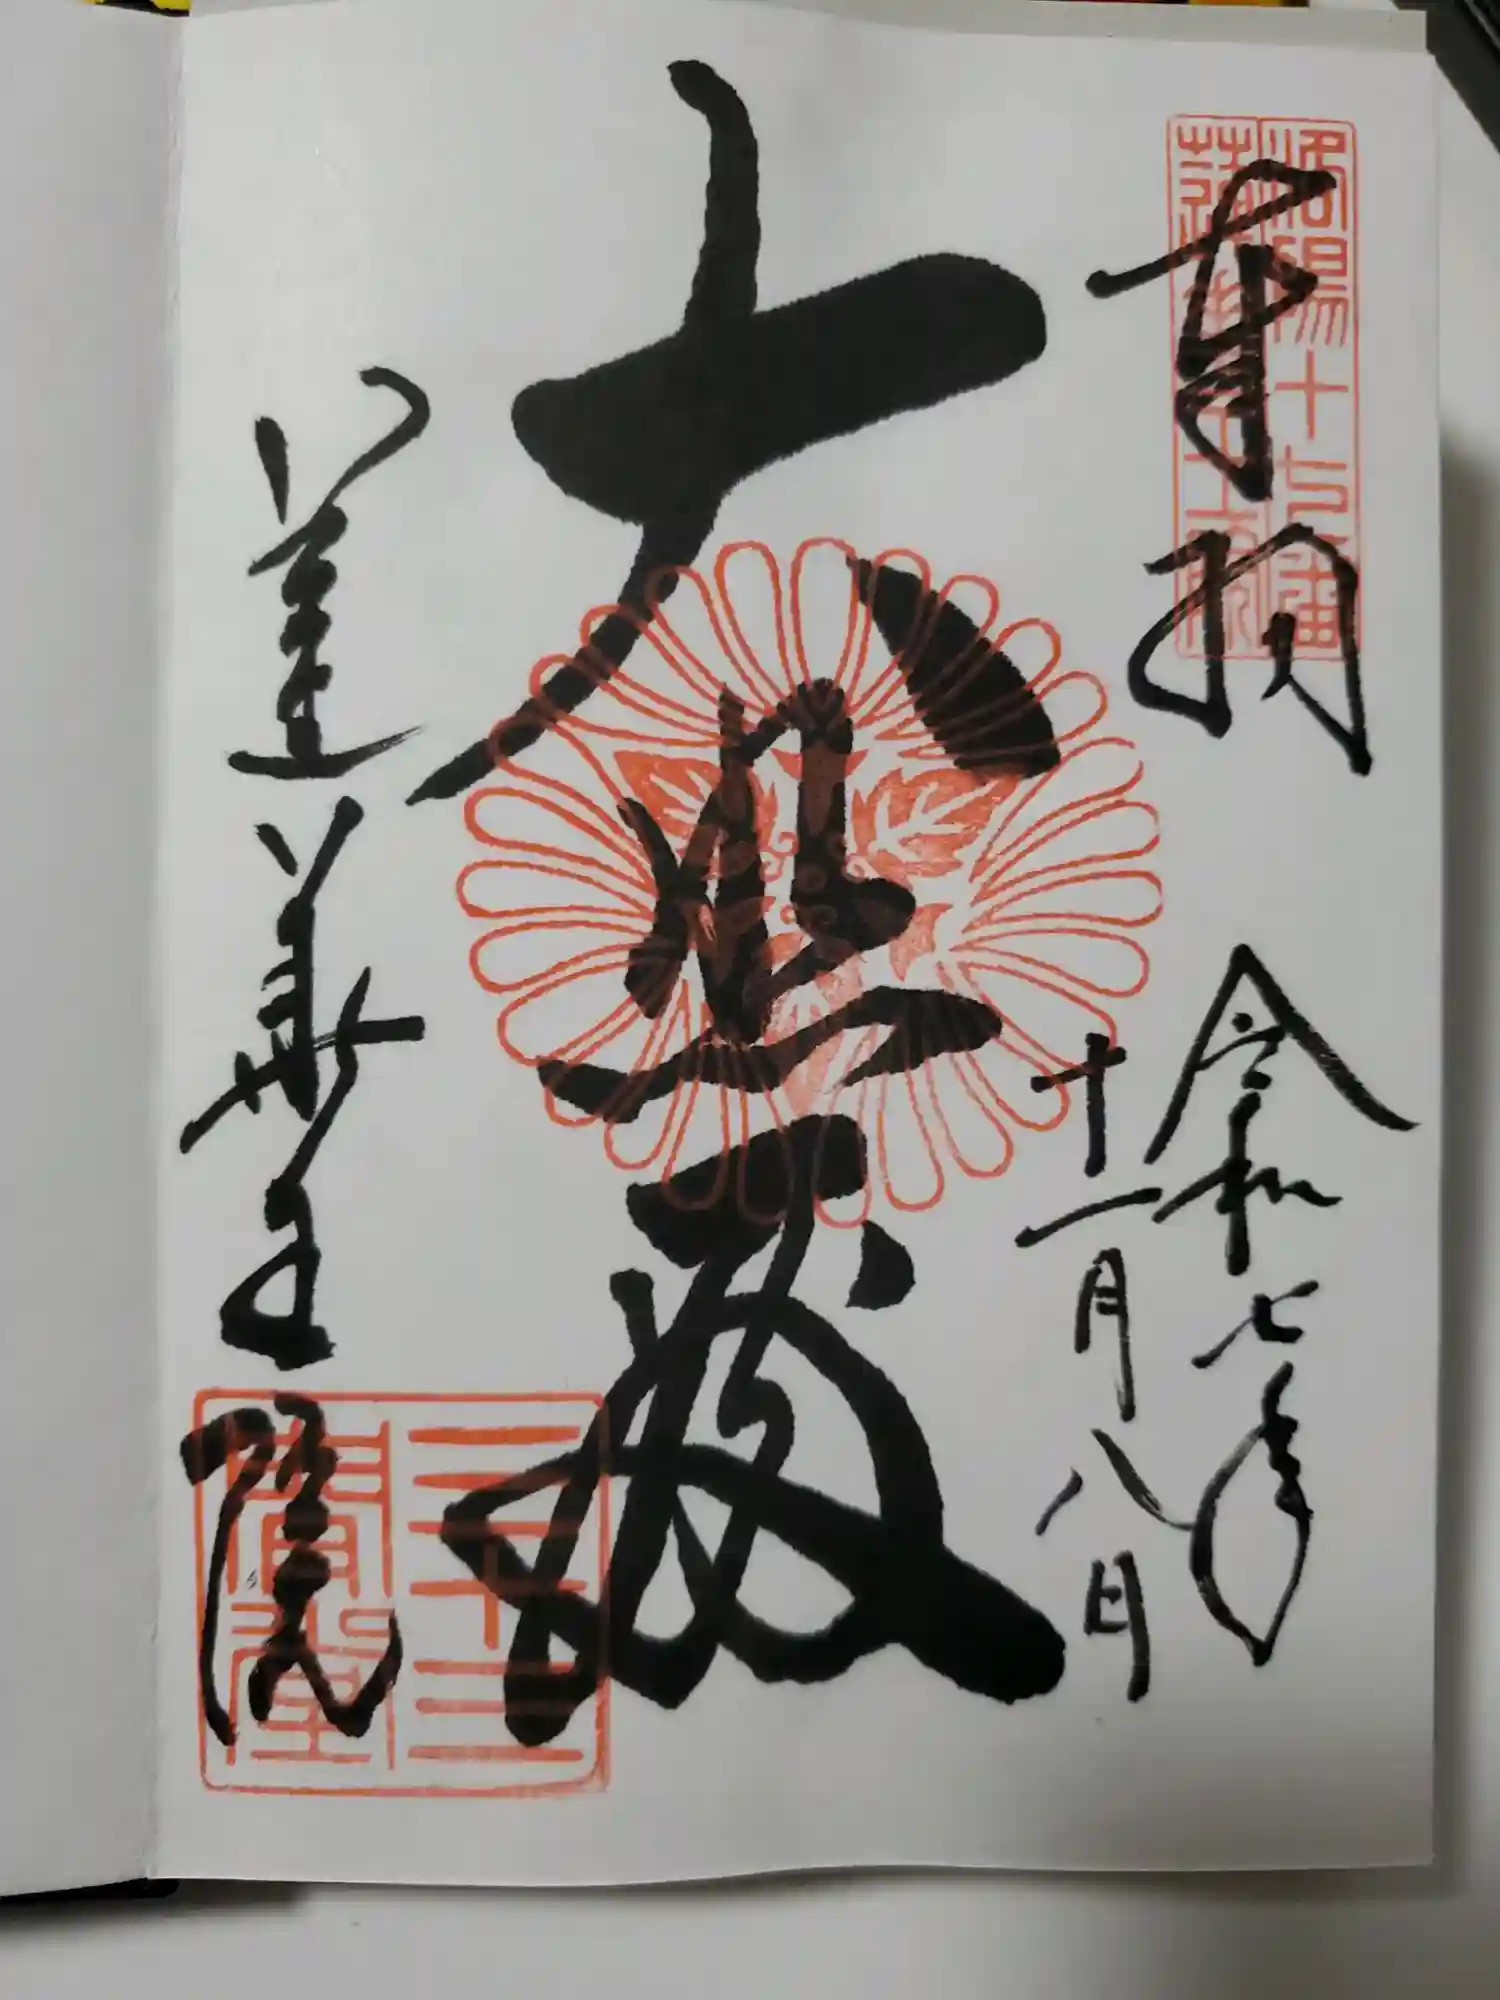 奉拝
洛陽十七番
蓮華王院
令和七年
十一月八日
大悲殿
蓮華王院
三十三
間堂